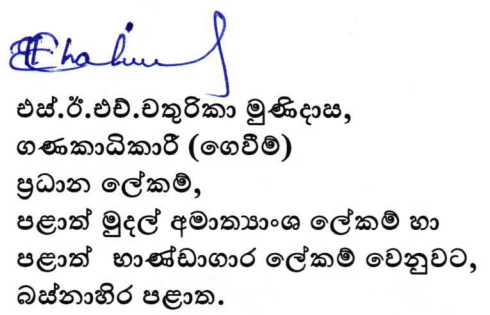 එස්.ඊ.එච්.චතුරිකා මුණිදාස,
ගණකාධිකාරී (ගෙවීම්)
ප්‍රධාන ලේකම්,
පළාත් මුදල් අමාත්‍යාංශ ලේකම් හා
පළාත් භාණ්ඩාගාර ලේකම් වෙනුවට,
බස්නාහිර පළාත.